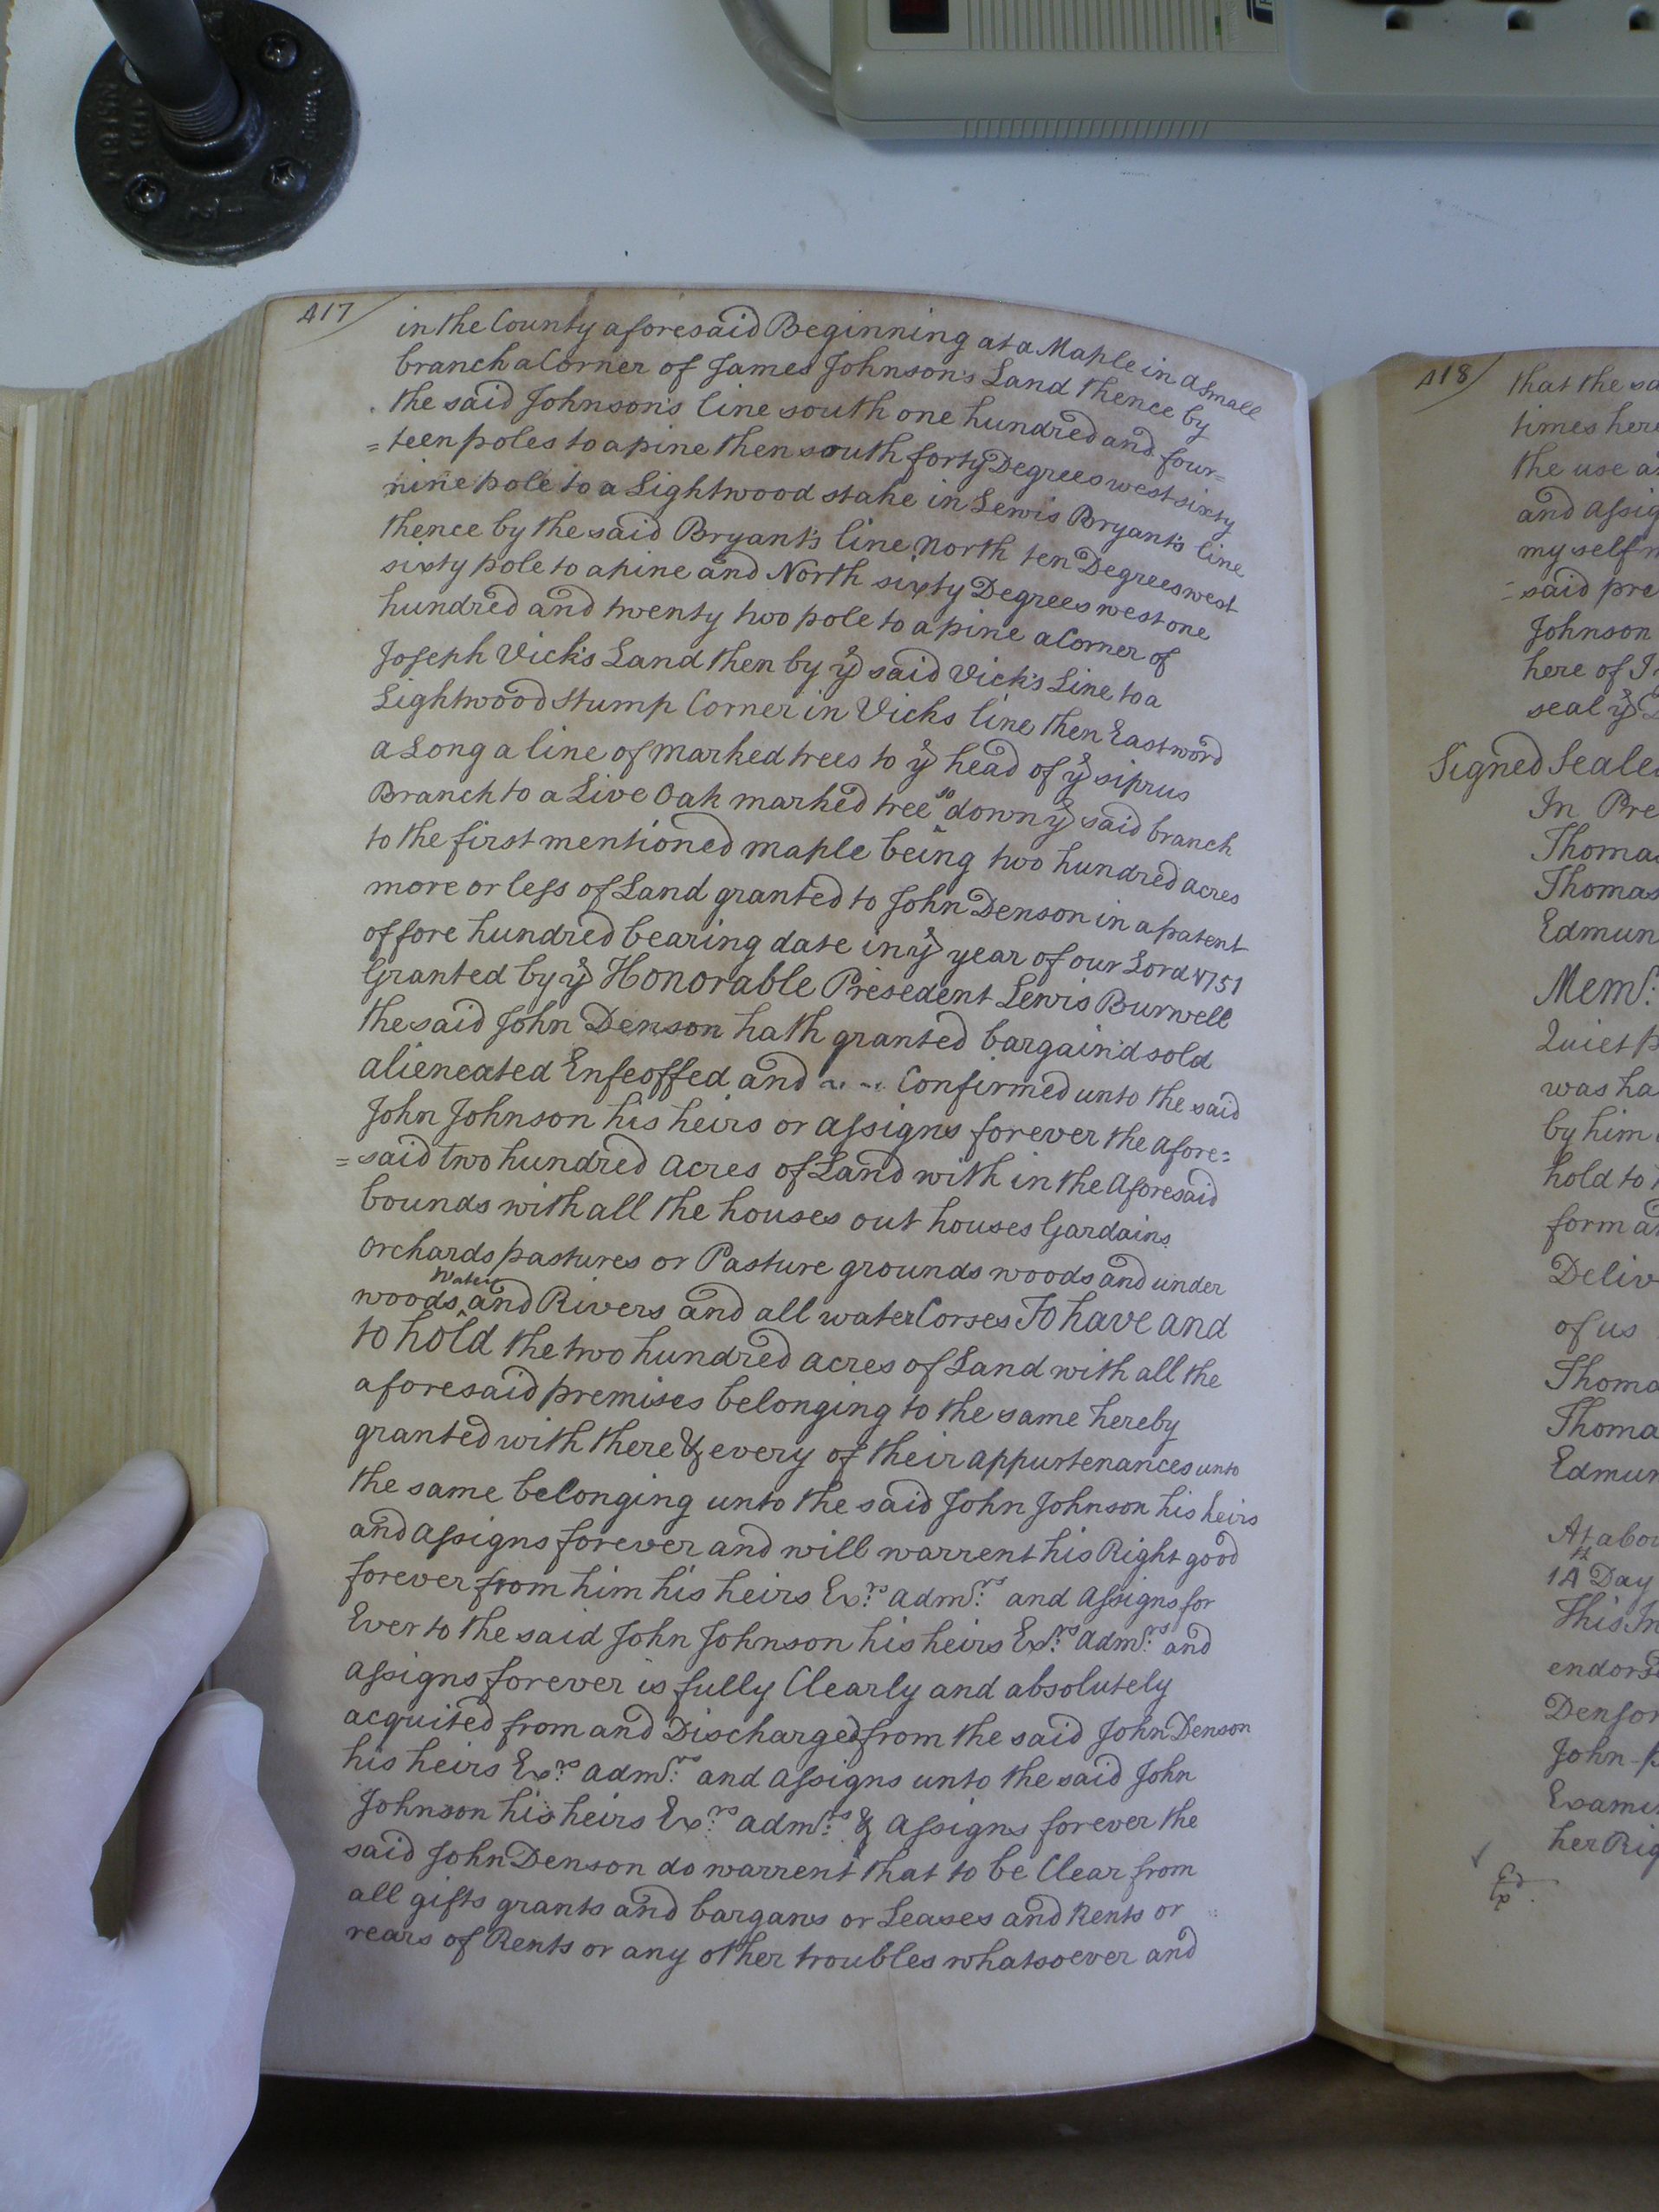 417
in the County aforesaid Beginning at a Maple in a small
branch a Corner of James Johnson's Land thence by
the said Johnson's line south one hundred and four=
=teen poles to a pine then south forty Degrees west sixty
nine pole to a Lightwood stake in Lewis Bryant's line
thence by the said Bryant's line North ten Degrees west
sixty pole to a pine and North sixty Degrees west one
hundred and twenty two pole to a pine a Corner of
Joseph Vick's Land then by ye said Vick's Line to a
Lightwood stump Corner in Vicks line then Eastword
a Long a line of marked trees to ye head of ye siprus
Branch to a Live Oak marked tree so down ye said branch
to the first mentioned maple being two hundred acres
more or less of Land granted to John Denson in a patent
of fore hundred bearing date in ye year of our Lord 1751
Granted by ye Honorable Presedent Lewis Burwell
the said John Denson hath granted bargain'd sold
alieneated Enfeoffed and Confirmed unto the said
John Johnson his heirs or assigns forever the afore=
=said two hundred acres of Land with in the aforesaid
bounds with all the houses out houses Gardains
orchards pastures or Pasture grounds woods and under
woods waters and Rivers and all water Corses To have and
to hold the two hundred acres of Land with all the
aforesaid premises belonging to the same hereby
granted with there & every of their appurtenances unto
the same belonging unto the said John Johnson his heirs
and assigns forever and will warrent his Right good
forever from him his heirs Exrs admrs and assigns for
Ever to the said John Johnson his heirs Exrs admrs and
assigns forever is fully Clearly and absolutely
acquited from and Discharged from the said John Denson
his heirs Exrs admrs and assigns unto the said John
Johnson his heirs Exrs admrs & assigns forever the
said John Denson do warrent that to be Clear from
all gifts grants and bargans or Leases and Rents or
rears of Rents or any other troubles whatsoever and
418
that the
times
the use
and
my self
said
Johnson
here of
seal ye
Signed
In
Thomas
Edmun
Mem:
Quiet
was
by him
hold to
form
of us
At
14 Day
John
her